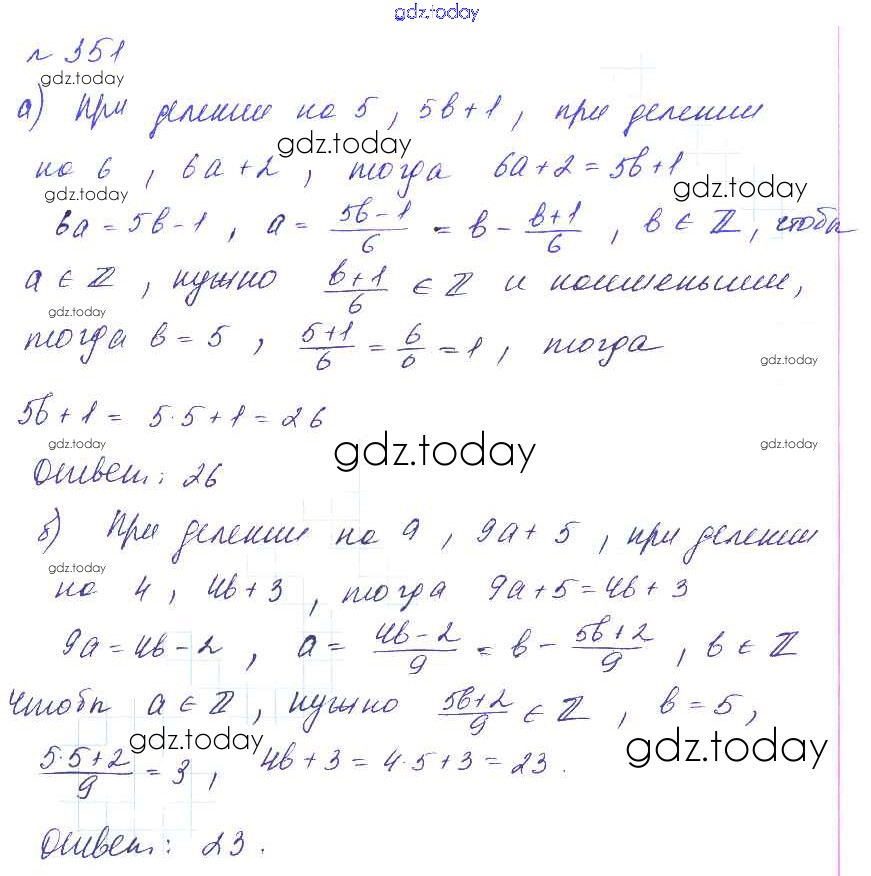 gdz.today
№ 351
gdz.today
а) При делении на 5, 5в+1, при делении
gdz.today
на 6, 6а+2, тогда 6а+2=5в+1
gdz.today gdz.today
6а=5в-1, а= (5в-1)/6 = в - (в+1)/6, в ∈ ℤ, чтобы
а ∈ ℤ, нужно (в+1)/6 ∈ ℤ и наименьшим,
gdz.today
тогда в = 5, (5+1)/6 = 6/6 = 1, тогда
gdz.today
5в+1 = 5·5+1=26
gdz.today gdz.today gdz.today
Ответ: 26
б) При делении на 9, 9а+5, при делении
gdz.today
на 4, 4в+3, тогда 9а+5=4в+3
9а=4в-2, а= (4в-2)/9 = в - (5в+2)/9, в ∈ ℤ
Чтобы а ∈ ℤ, нужно (5в+2)/9 ∈ ℤ, в=5,
gdz.today gdz.today
(5·5+2)/9 = 3, 4в+3=4·5+3=23.
Ответ: 23.